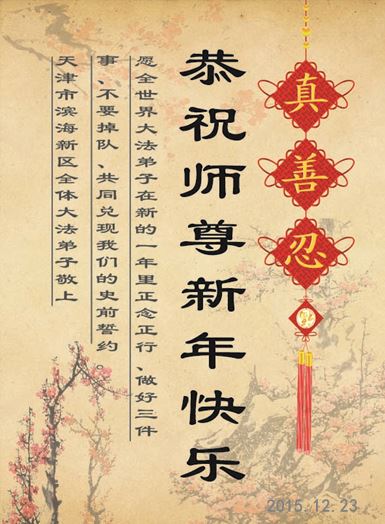 真
善
忍
恭祝师尊新年快乐
愿全世界大法弟子在新的一年里正念正行、做好三件
事、不要掉队、共同兑现我们的史前誓约。
天津市滨海新区全体大法弟子敬上
2015.12.23